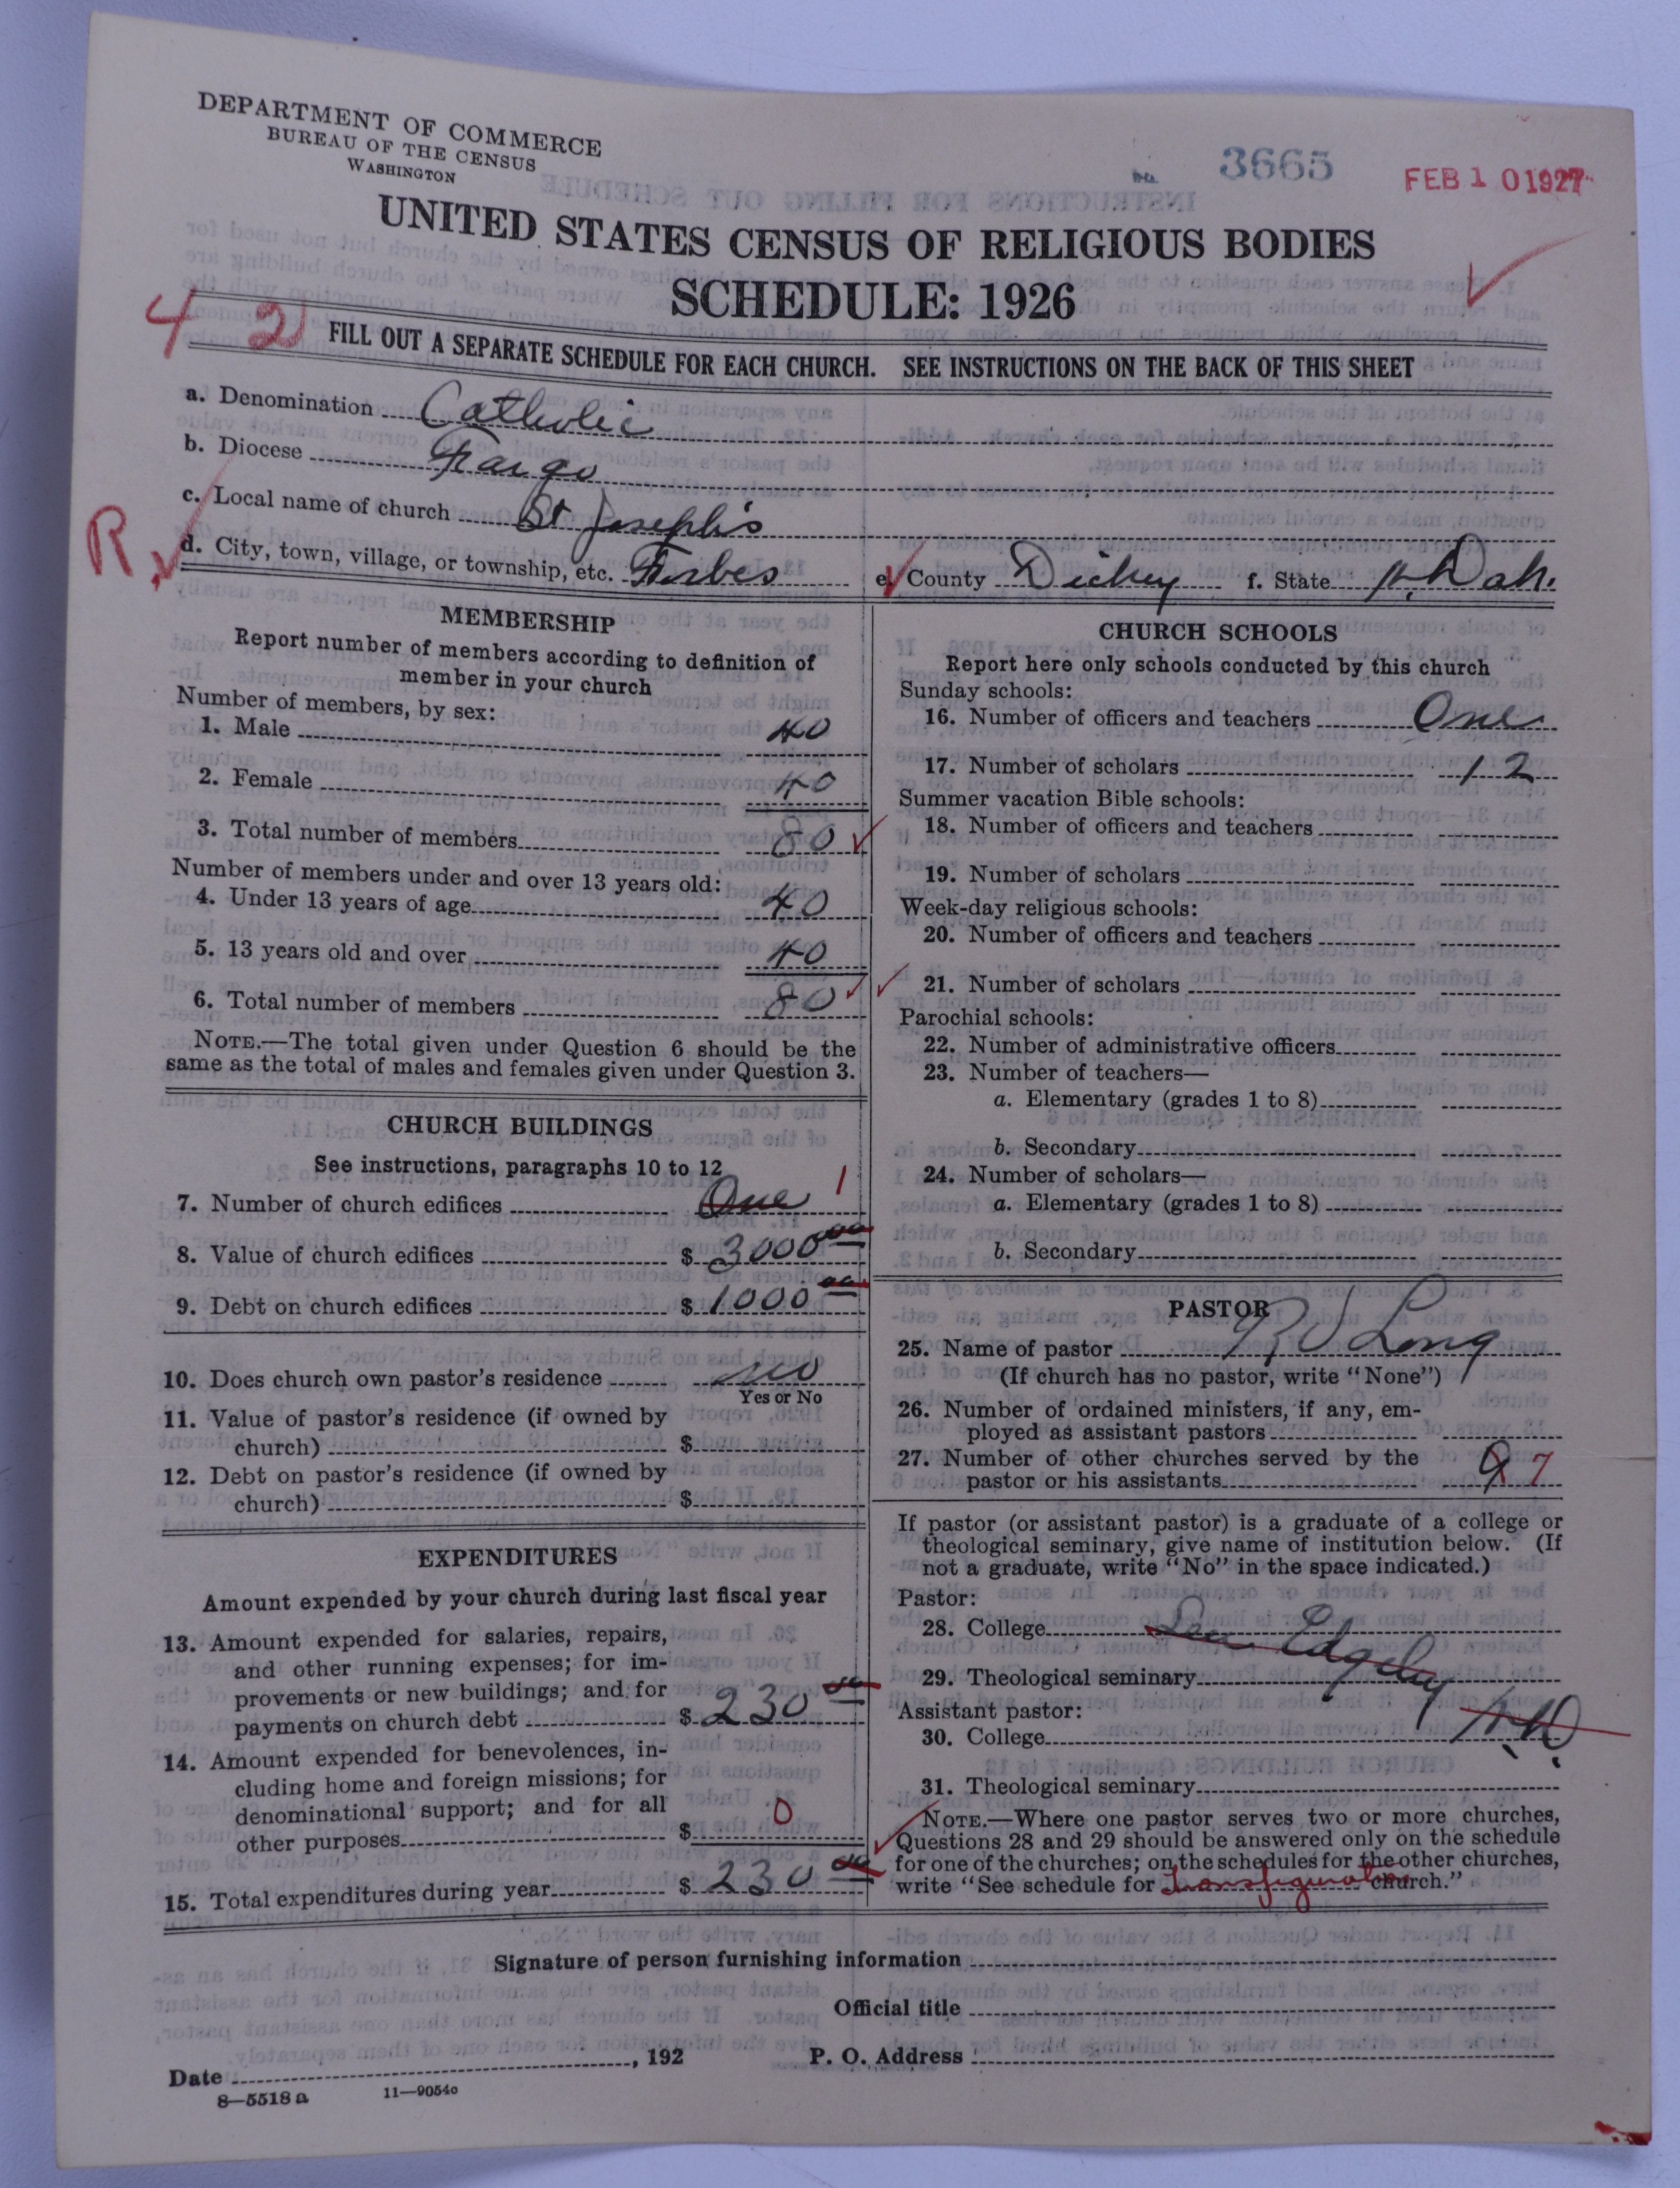 DEPARTMENT OF COMMERCE
BUREAU OF THE CENSUS
WASHINGTON
3665
FEB 10 1927
UNITED STATES CENSUS OF RELIGIOUS BODIES
SCHEDULE: 1926
4 2
FILL OUT A SEPARATE SCHEDULE FOR EACH CHURCH. SEE INSTRUCTIONS ON THE BACK OF THIS SHEET
a. Denomination Catholic
b. Diocese Fargo
c. Local name of church St Joseph's
R
d. City, town, village, or township, etc. Forbes e. County Dickey f. State N. Dak.
MEMBERSHIP
Report number of members according to definition of
member in your church
Number of members, by sex:
1. Male 40
2. Female 40
3. Total number of members 80
Number of members under and over 13 years old:
4. Under 13 years of age 40
5. 13 years old and over 40
6. Total number of members 80
NOTE.—The total given under Question 6 should be the
same as the total of males and females given under Question 3.
CHURCH BUILDINGS
See instructions, paragraphs 10 to 12
7. Number of church edifices One 1
8. Value of church edifices $ 3000 00
9. Debt on church edifices $ 1000 00
10. Does church own pastor's residence no
Yes or No
11. Value of pastor's residence (if owned by
church) $
12. Debt on pastor's residence (if owned by
church) $
EXPENDITURES
Amount expended by your church during last fiscal year
13. Amount expended for salaries, repairs,
and other running expenses; for im-
provements or new buildings; and for
payments on church debt $ 230 00
14. Amount expended for benevolences, in-
cluding home and foreign missions; for
denominational support; and for all
other purposes $ 0
15. Total expenditures during year $ 230 00
CHURCH SCHOOLS
Report here only schools conducted by this church
Sunday schools:
16. Number of officers and teachers One
17. Number of scholars 12
Summer vacation Bible schools:
18. Number of officers and teachers
19. Number of scholars
Week-day religious schools:
20. Number of officers and teachers
21. Number of scholars
Parochial schools:
22. Number of administrative officers
23. Number of teachers—
a. Elementary (grades 1 to 8)
b. Secondary
24. Number of scholars—
a. Elementary (grades 1 to 8)
b. Secondary
PASTOR
25. Name of pastor Long
(If church has no pastor, write "None")
26. Number of ordained ministers, if any, em-
ployed as assistant pastors
27. Number of other churches served by the
pastor or his assistants 9 7
If pastor (or assistant pastor) is a graduate of a college or
theological seminary, give name of institution below. (If
not a graduate, write "No" in the space indicated.)
Pastor:
28. College
See Edgeley
29. Theological seminary
Assistant pastor:
30. College
31. Theological seminary
NOTE.—Where one pastor serves two or more churches,
Questions 28 and 29 should be answered only on the schedule
for one of the churches; on the schedules for the other churches,
write "See schedule for Transfiguration church."
Signature of person furnishing information
Official title
Date , 192 P. O. Address
8—5518 a 11—9054c